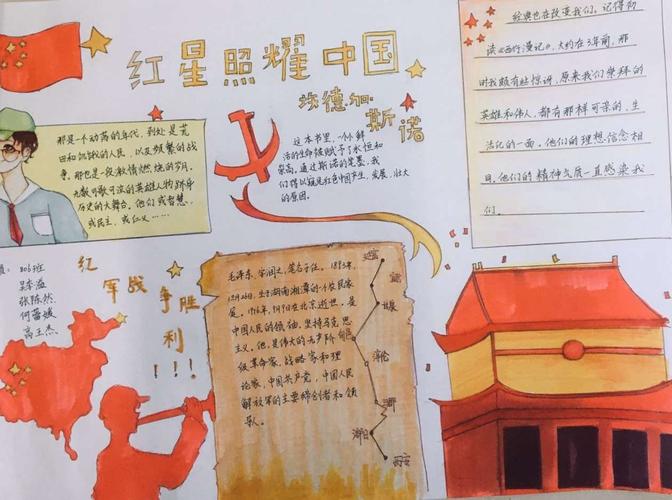 红星照耀中国
埃德加·斯诺
那是一个动荡的年代，到处是荒
田和饥饿的人民，以及频繁的战
争。那也是一段激情燃烧的岁月，
无数可歌可泣的英雄人物跻身
历史的大舞台。他们或智慧，
或民主，或仁义……
这本书里，一个个鲜
活的生命被赋予了永恒和
崇高。通过斯诺的笔墨，我
们得以窥见红色中国产生、发展、壮大
的原因。
经典也在改变我们。记得初
读《西行漫记》，大约在3年前，那
时我颇有些惊讶，原来我们崇拜的
英雄和伟人，都有那样可亲的，生
活化的一面。他们的理想、信念相
同，他们的精神气质一直感染我
们。
806班
张陈然
何蕾媛
高王杰
红军战争胜利！！！
毛泽东，字润之，笔名子任。1893年
12月26日，生于湖南湘潭的一个农民家
庭。1976年9月9日在北京逝世。是
中国人民的领袖，坚持马克思
主义。他，是伟大的无产阶
级革命家，战略家和理
论家，中国共产党，中国人民
解放军的主要缔创者和领
导人。